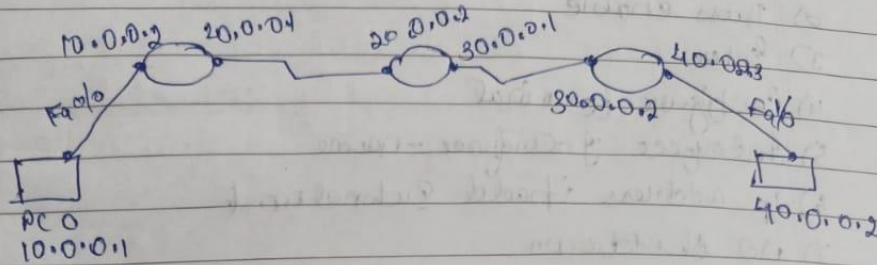 10.0.0.2
20.0.0.1
20.0.0.2
30.0.0.1
40.0.0.3
Fa0/0
30.0.0.2
Fa0/0
PC 0
10.0.0.1
40.0.0.2